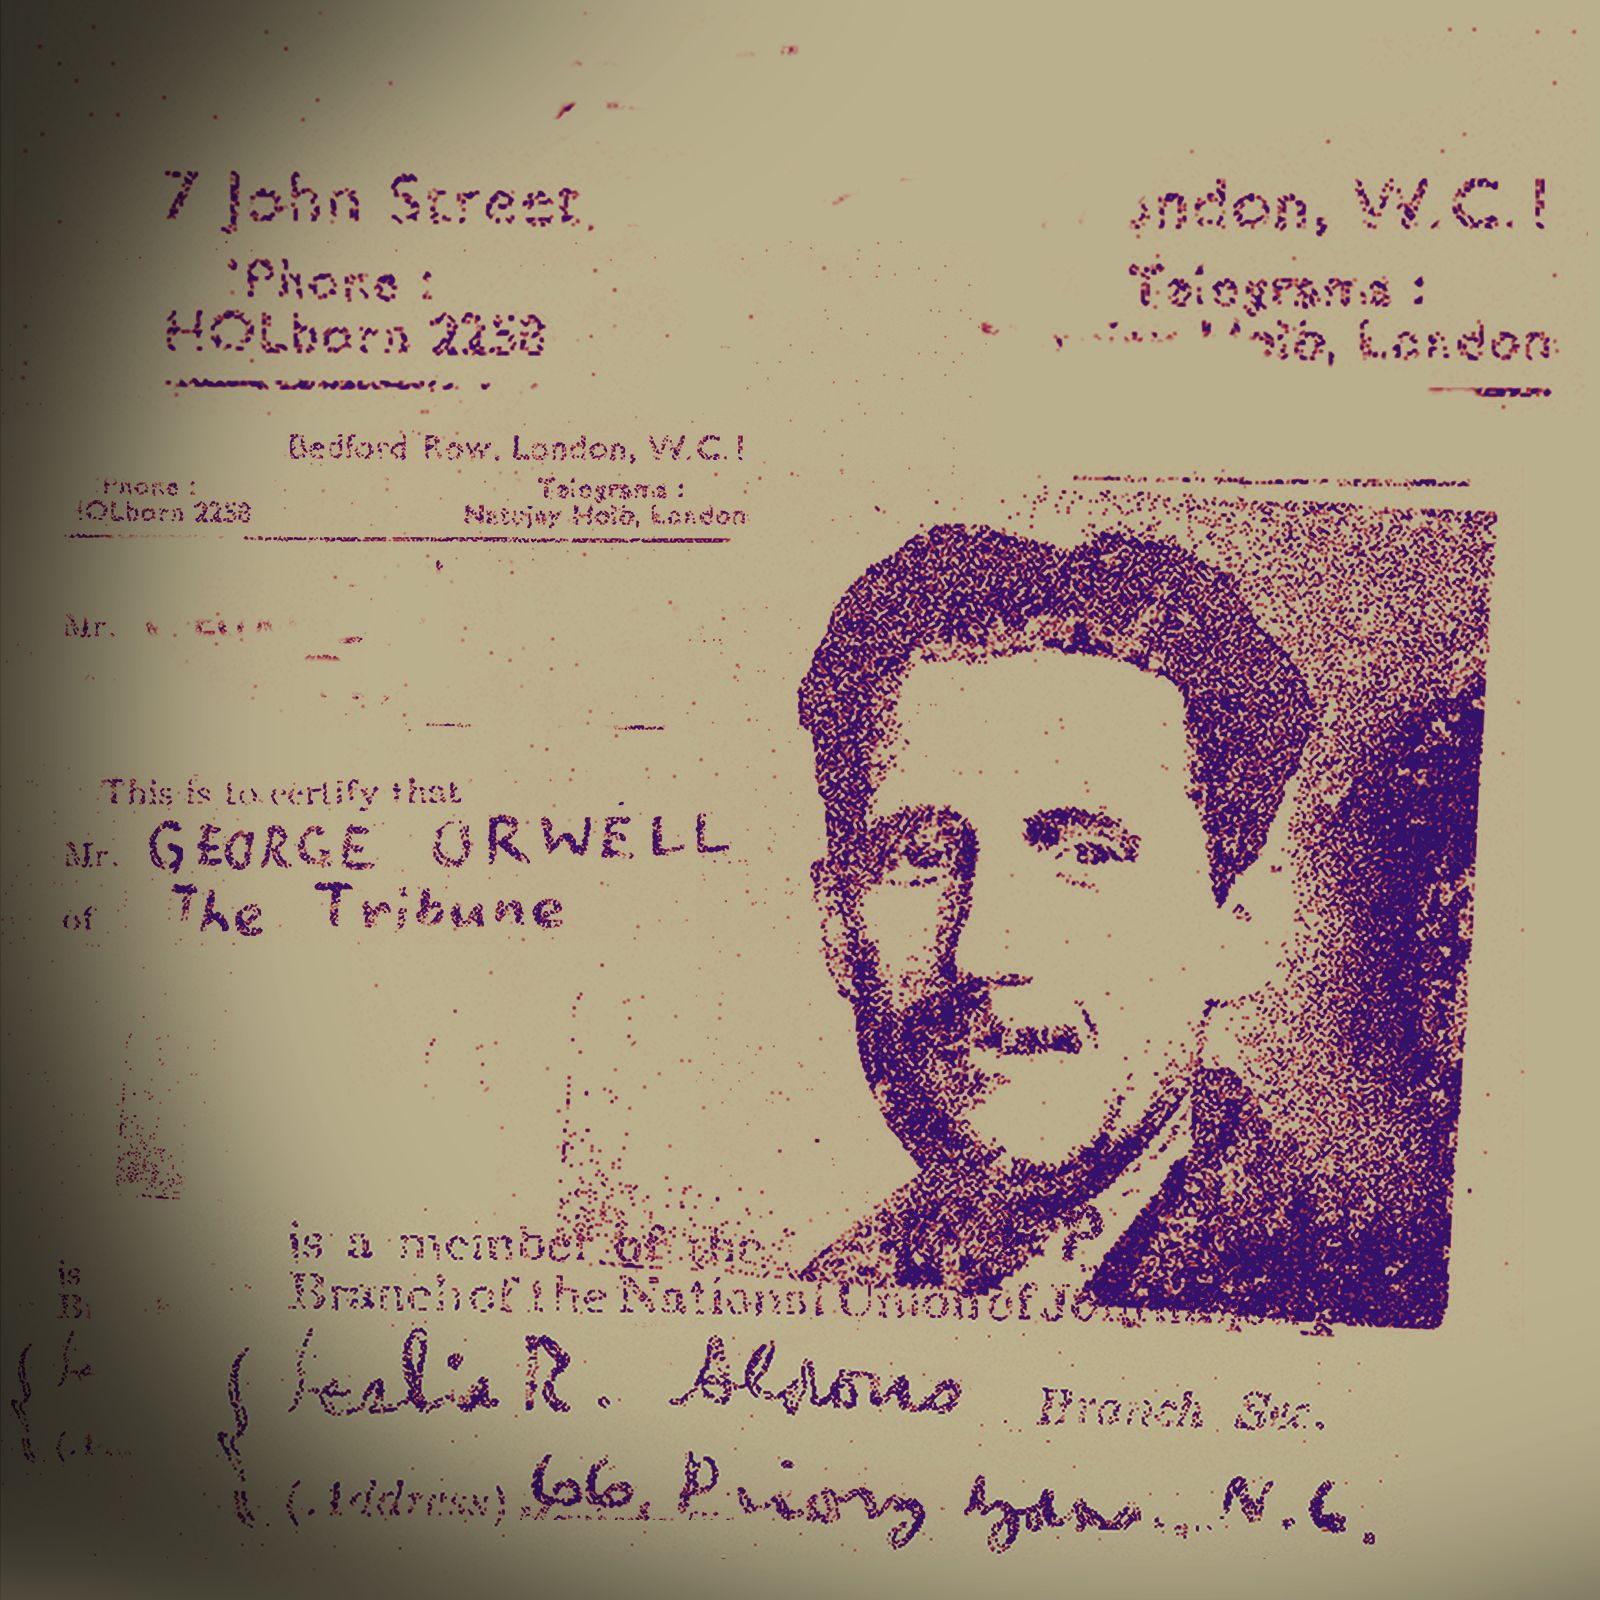 7 John Street,
London, W.C.1
'Phone :
Telegrams :
HOLborn 2258
Holb, London
Bedford Row, London, W.C.1
'Phone :
Telegrams :
HOLborn 2258
Natujay Holb, London
Mr.
This is to certify that
Mr. GEORGE ORWELL
of The Tribune
is a member of the
Branch of the National Union of
is
Br
Leslie R. Aldous Branch Sec.
(Address) 66, Priory Gdns. N.6.